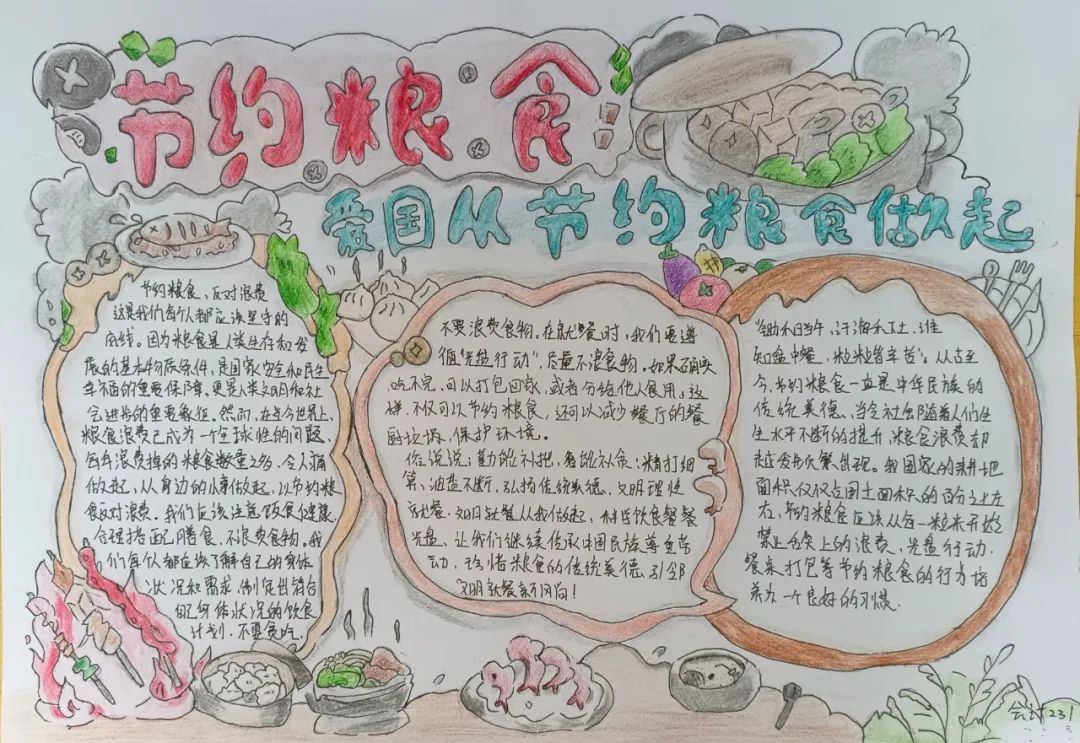 节约粮食
爱国从节约粮食做起
节约粮食、反对浪费
这是我们每个人都应该坚守的
底线。因为粮食是人类生存和发
展的基本物质条件,是国家安全和民生
幸福的重要保障,更是人类文明和社
会进步的重要象征。然而,在当今世界上,
粮食浪费已成为一个全球性的问题,
每年浪费掉的粮食数量之多,令人痛
做起,从身边的小事做起,以节约粮
食反对浪费。我们应该注意饭食健康,
合理搭配膳食,不浪费食物。我
们每个人都应该了解自己的身体
状况和需求,制定出销合
自己身体状况的饮食
计划,不要贪吃.
不要浪费食物,在就餐时,我们要遵
循"光盘行动",尽量不浪费食物,如果确实
吃不完,可以打包回家,或者分给他人食用,这
样,不仅可以节约粮食,还可以减少餐厅的餐
厨垃圾,保护环境。
俗话说:勤能补拙,俭能补贫:精打细
算,油盐不断,弘扬传统美德、文明理性
就餐.文明就餐从我做起,科学饮食餐餐
光盘、让我们继续传承中国民族尊重劳
动、珍惜粮食的传统美德,引领
文明就餐新风尚!
"锄禾日当午,汗滴禾下土,谁
知盘中餐,粒粒皆辛苦"。从古至
今,节约粮食一直是中华民族的
传统美德、当会社会随着人们生
生水平不断的提升,粮食浪费却
越发频繁出现。我国家的耕地
面积仅仅占国土面积的百分之七左
右,节约粮食应该从每一粒米开始
禁止舌尖上的浪费,光盘行动.
餐桌打包等节约粮食的行为培
养为一个良好的习惯.
会计231